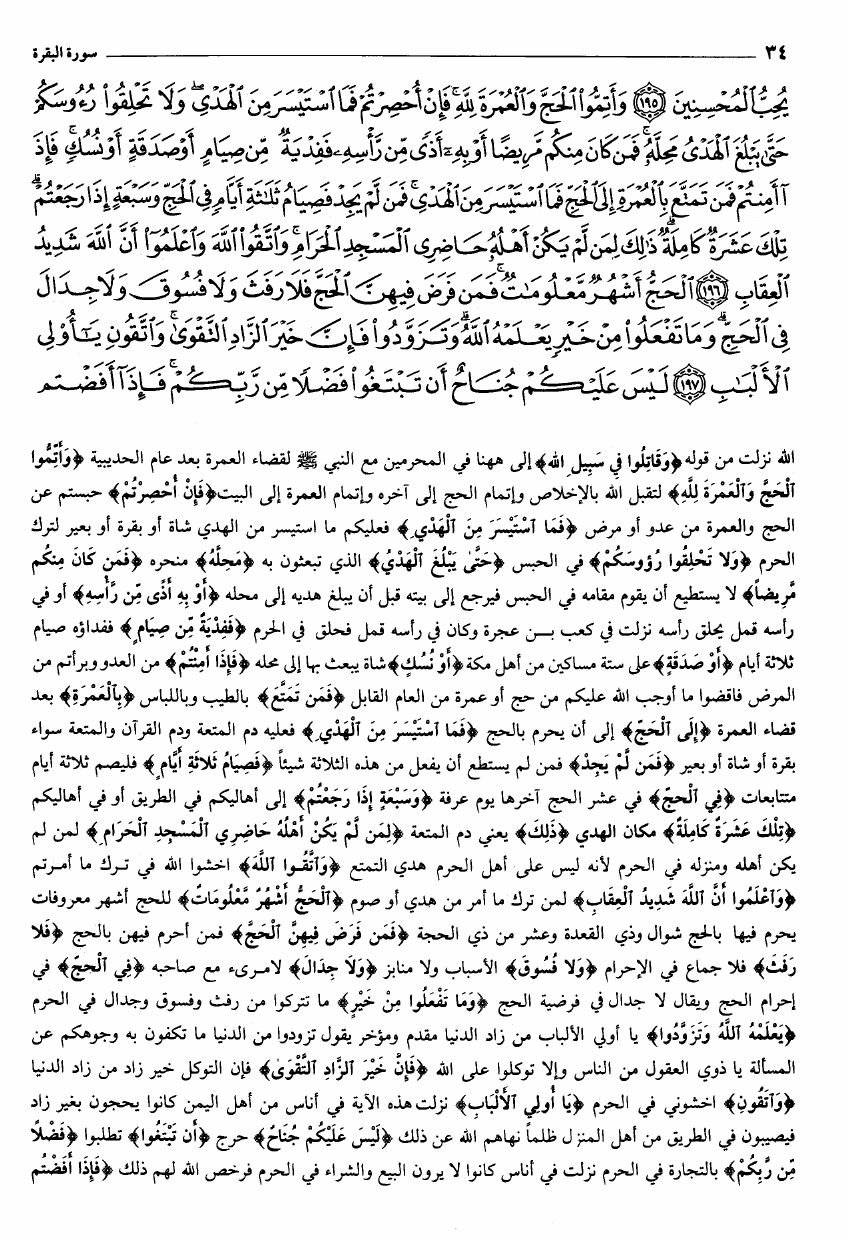 ٣٤ سورة البقرة
يُحِبُّ ٱلْمُحْسِنِينَ ﴿١٩٥﴾ وَأَتِمُّوا۟ ٱلْحَجَّ وَٱلْعُمْرَةَ لِلَّهِ ۚ فَإِنْ أُحْصِرْتُمْ فَمَا ٱسْتَيْسَرَ مِنَ ٱلْهَدْىِ ۖ وَلَا تَحْلِقُوا۟ رُءُوسَكُمْ
حَتَّىٰ يَبْلُغَ ٱلْهَدْىُ مَحِلَّهُۥ ۚ فَمَن كَانَ مِنكُم مَّرِيضًا أَوْ بِهِۦٓ أَذًى مِّن رَّأْسِهِۦ فَفِدْيَةٌ مِّن صِيَامٍ أَوْ صَدَقَةٍ أَوْ نُسُكٍ ۚ فَإِذَ
ا أَمِنتُمْ فَمَن تَمَتَّعَ بِٱلْعُمْرَةِ إِلَى ٱلْحَجِّ فَمَا ٱسْتَيْسَرَ مِنَ ٱلْهَدْىِ ۚ فَمَن لَّمْ يَجِدْ فَصِيَامُ ثَلَـٰثَةِ أَيَّامٍ فِى ٱلْحَجِّ وَسَبْعَةٍ إِذَا رَجَعْتُمْ ۗ
تِلْكَ عَشَرَةٌ كَامِلَةٌ ۗ ذَٰلِكَ لِمَن لَّمْ يَكُنْ أَهْلُهُۥ حَاضِرِى ٱلْمَسْجِدِ ٱلْحَرَامِ ۚ وَٱتَّقُوا۟ ٱللَّهَ وَٱعْلَمُوٓا۟ أَنَّ ٱللَّهَ شَدِيدُ
ٱلْعِقَابِ ﴿١٩٦﴾ ٱلْحَجُّ أَشْهُرٌ مَّعْلُومَـٰتٌ ۚ فَمَن فَرَضَ فِيهِنَّ ٱلْحَجَّ فَلَا رَفَثَ وَلَا فُسُوقَ وَلَا جِدَالَ
فِى ٱلْحَجِّ ۗ وَمَا تَفْعَلُوا۟ مِنْ خَيْرٍ يَعْلَمْهُ ٱللَّهُ ۗ وَتَزَوَّدُوا۟ فَإِنَّ خَيْرَ ٱلزَّادِ ٱلتَّقْوَىٰ ۚ وَٱتَّقُونِ يَـٰٓأُو۟لِى
ٱلْأَلْبَـٰبِ ﴿١٩٧﴾ لَيْسَ عَلَيْكُمْ جُنَاحٌ أَن تَبْتَغُوا۟ فَضْلًا مِّن رَّبِّكُمْ ۚ فَإِذَآ أَفَضْتُم
الله نزلت من قوله ﴿وَقَاتِلُوا فِي سَبِيلِ الله﴾ إلى ههنا في المحرمين مع النبي ﷺ لقضاء العمرة بعد عام الحديبية ﴿وَأَتِّمُوا
ٱلْحَجَّ وَٱلْعُمْرَةَ لِلَّهِ﴾ لتقبل الله بالإخلاص وإتمام الحج إلى آخره وإتمام العمرة إلى البيت ﴿فَإِنْ أُحْصِرْتُمْ﴾ حبستم عن
الحج والعمرة من عدو أو مرض ﴿فَمَا ٱسْتَيْسَرَ مِنَ ٱلْهَدْيِ﴾ فعليكم ما استيسر من الهدي شاة أو بقرة أو بعير لترك
الحرم ﴿وَلَا تَحْلِقُوا رُؤُوسَكُمْ﴾ في الحبس ﴿حَتَّى يَبْلُغَ ٱلْهَدْيُ﴾ الذي تبعثون به ﴿مَحِلَّهُ﴾ منحره ﴿فَمَن كَانَ مِنكُم
مَّرِيضاً﴾ لا يستطيع أن يقوم مقامه في الحبس فيرجع إلى بيته قبل أن يبلغ هديه إلى محله ﴿أَوْ بِهِ أَذًى مِّن رَّأْسِهِ﴾ أو في
رأسه قمل يحلق رأسه نزلت في كعب بـن عجرة وكان في رأسه قمل فحلق في الحرم ﴿فَفِدْيَةٌ مِّن صِيَامٍ﴾ ففداؤه صيام
ثلاثة أيام ﴿أَوْ صَدَقَةٍ﴾ على ستة مساكين من أهل مكة ﴿أَوْ نُسُكٍ﴾ شاة يبعث بها إلى محله ﴿فَإِذَا أَمِنْتُمْ﴾ من العدو وبرأتم من
المرض فاقضوا ما أوجب الله عليكم من حج أو عمرة من العام القابل ﴿فَمَن تَمَتَّعَ﴾ بالطيب وباللباس ﴿بِٱلْعُمْرَةِ﴾ بعد
قضاء العمرة ﴿إِلَى ٱلْحَجِّ﴾ إلى أن يحرم بالحج ﴿فَمَا ٱسْتَيْسَرَ مِنَ ٱلْهَدْيِ﴾ فعليه دم المتعة ودم القرآن والمتعة سواء
بقرة أو شاة أو بعير ﴿فَمَن لَّمْ يَجِدْ﴾ فمن لم يستطع أن يفعل من هذه الثلاثة شيئاً ﴿فَصِيَامُ ثَلاثَةِ أَيَّامٍ﴾ فليصم ثلاثة أيام
متتابعات ﴿فِي ٱلْحَجِّ﴾ في عشر الحج آخرها يوم عرفة ﴿وَسَبْعَةٍ إِذَا رَجَعْتُمْ﴾ إلى أهاليكم في الطريق أو في أهاليكم
﴿تِلْكَ عَشَرَةٌ كَامِلَةٌ﴾ مكان الهدي ﴿ذَلِكَ﴾ يعني دم المتعة ﴿لِمَن لَّمْ يَكُنْ أَهْلُهُ حَاضِرِي ٱلْمَسْجِدِ ٱلْحَرَامِ﴾ لمن لم
يكن أهله ومنزله في الحرم لأنه ليس على أهل الحرم هدي التمتع ﴿وَٱتَّقُوا ٱللَّهَ﴾ اخشوا الله في ترك ما أمرتم
﴿وَٱعْلَمُوا أَنَّ ٱللَّهَ شَدِيدُ ٱلْعِقَابِ﴾ لمن ترك ما أمر من هدي أو صوم ﴿ٱلْحَجُّ أَشْهُرٌ مَّعْلُومَاتٌ﴾ للحج أشهر معروفات
يحرم فيها بالحج شوال وذي القعدة وعشر من ذي الحجة ﴿فَمَن فَرَضَ فِيهِنَّ ٱلْحَجَّ﴾ فمن أحرم فيهن بالحج ﴿فَلا
رَفَثَ﴾ فلا جماع في الإحرام ﴿وَلا فُسُوقَ﴾ الأسباب ولا منابز ﴿وَلَا جِدَالَ﴾ لامرىء مع صاحبه ﴿فِي ٱلْحَجِّ﴾ في
إحرام الحج ويقال لا جدال في فرضية الحج ﴿وَمَا تَفْعَلُوا مِنْ خَيْرٍ﴾ ما تتركوا من رفث وفسوق وجدال في الحرم
﴿يَعْلَمْهُ ٱللَّهُ وَتَزَوَّدُوا﴾ يا أولي الألباب من زاد الدنيا مقدم ومؤخر يقول تزودوا من الدنيا ما تكفون به وجوهكم عن
المسألة يا ذوي العقول من الناس وإلا توكلوا على الله ﴿فَإِنَّ خَيْرَ ٱلزَّادِ ٱلتَّقْوَىٰ﴾ فإن التوكل خير زاد من زاد الدنيا
﴿وَٱتَّقُونِ﴾ اخشوني في الحرم ﴿يَا أُولِي ٱلْأَلْبَابِ﴾ نزلت هذه الآية في أناس من أهل اليمن كانوا يحجون بغير زاد
فيصيبون في الطريق من أهل المنزل ظلماً نهاهم الله عن ذلك ﴿لَيْسَ عَلَيْكُمْ جُنَاحٌ﴾ حرج ﴿أَن تَبْتَغُوا﴾ تطلبوا ﴿فَضْلًا
مِّن رَّبِّكُمْ﴾ بالتجارة في الحرم نزلت في أناس كانوا لا يرون البيع والشراء في الحرم فرخص الله لهم ذلك ﴿فَإِذَا أَفَضْتُم